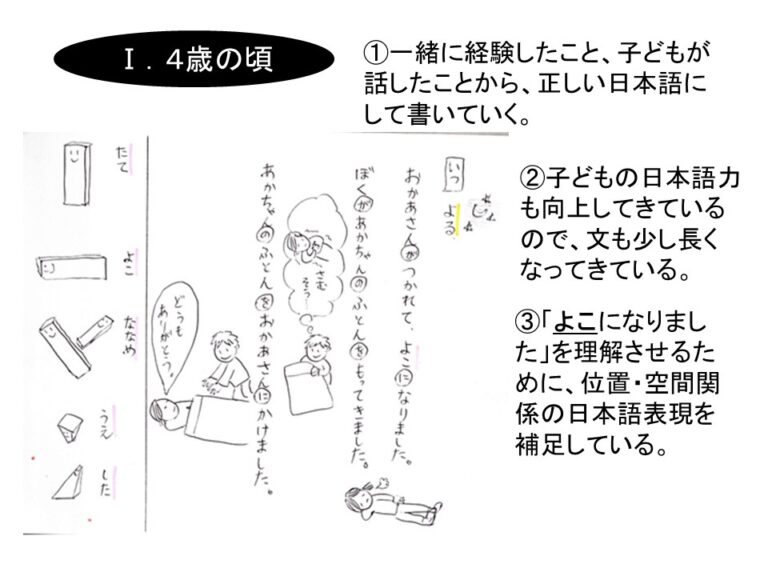 Ⅰ．４歳の頃
①一緒に経験したこと、子どもが
話したことから、正しい日本語に
して書いていく。
②子どもの日本語力
も向上してきている
ので、文も少し長く
なってきている。
③「よこになりまし
た」を理解させるた
めに、位置・空間関
係の日本語表現を
補足している。
いつ
よる
おかあさんがつかれて、よこになりました。
ぼくがあかちゃんのふとんをもってきました。
さむそう
あかちゃんのふとんをおかあさんにかけました。
どうも
ありがとう!
たて
よこ
ななめ
うえ
した